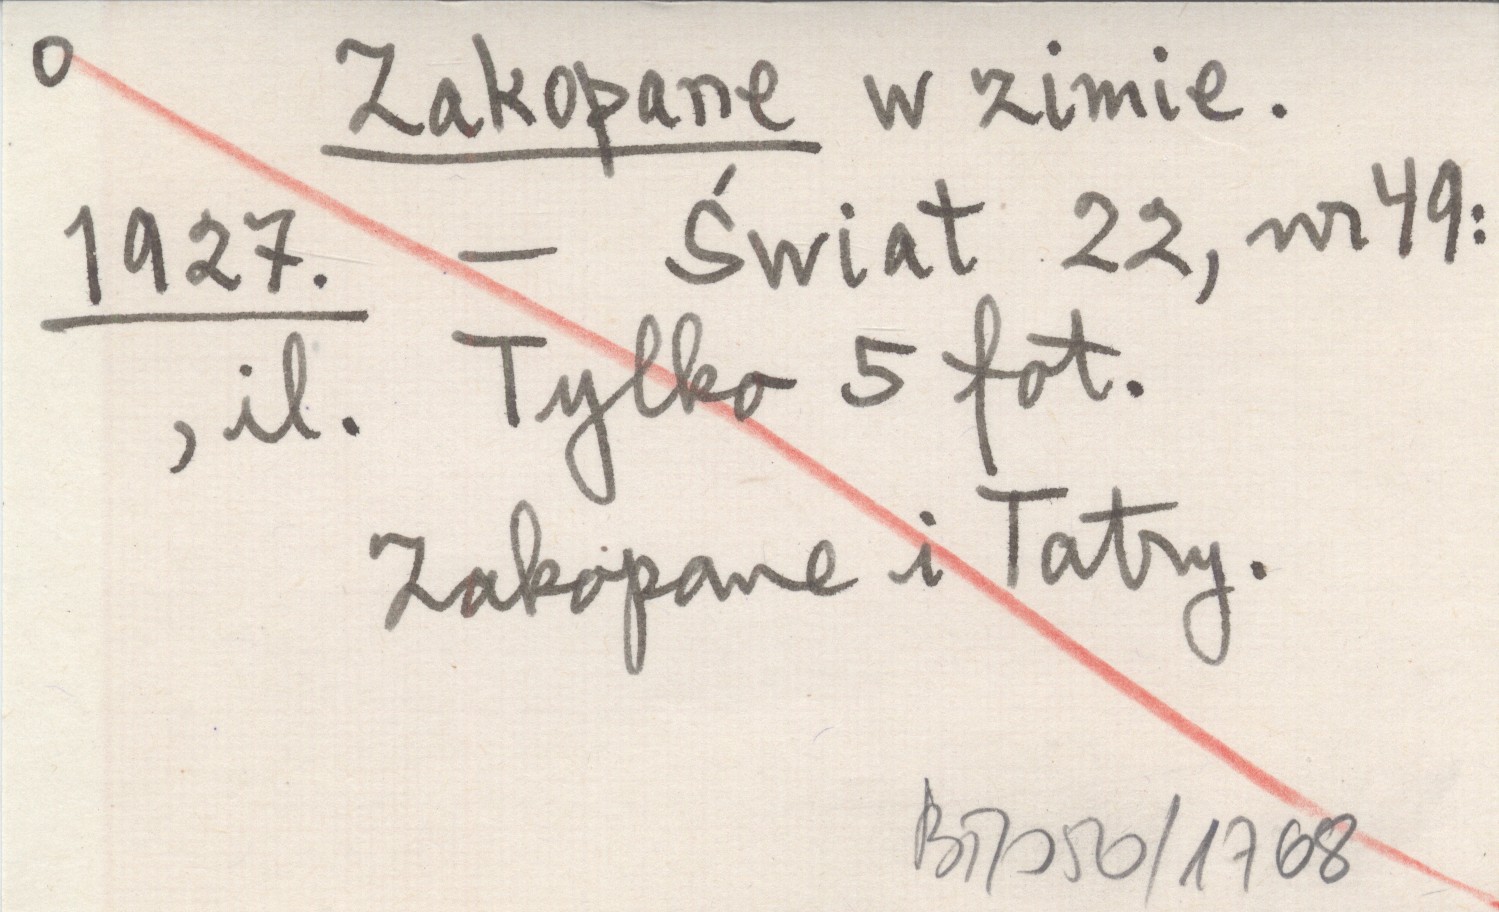 o Zakopane w zimie.
1927. — Świat 22, nr 49:
, il. Tylko 5 fot.
Zakopane i Tatry.
1768